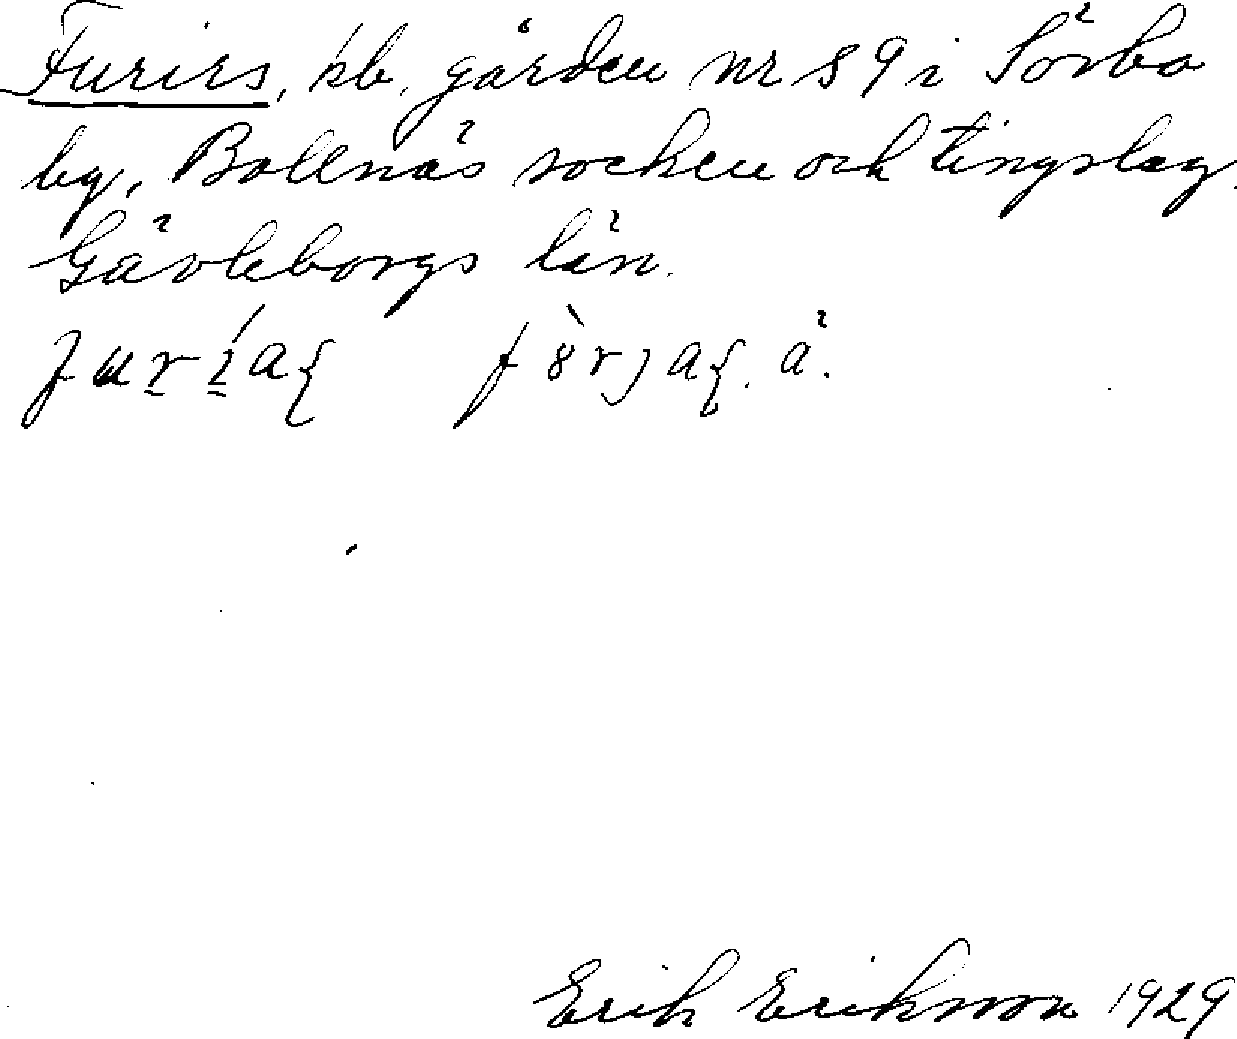 Furirs, kb, gården nr 89 i Sörbo
by, Bollnäs socken och tingslag.
Gävleborgs län.
Erik Eriksson 1929